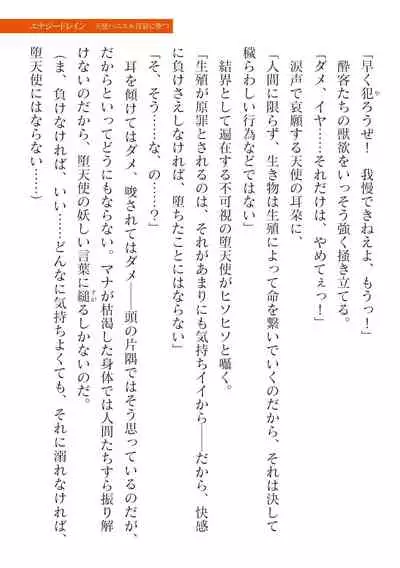 エナジードレイン 天使ハニエル首都に墜つ
「早く犯ろうぜ！　我慢できねえよ、もうっ！」
酔客たちの獣欲をいっそう強く掻き立てる。
「ダメ、イヤ……それだけは、やめてぇっ！」
涙声で哀願する天使の耳朶に、
「人間に限らず、生き物は生殖によって命を繋いでいくのだから、それは決して
穢らわしい行為などではない」
結界として遍在する不可視の堕天使がヒソヒソと囁く。
「生殖が原罪とされるのは、それがあまりにも気持ちイイから――だから、快感
に負けさえしなければ、堕ちたことにはならない」
「そ、そう……な、の……？」
耳を傾けてはダメ、唆されてはダメ――頭の片隅ではそう思っているのだが、
だからといってどうにもならない。マナが枯渇した身体では人間たちすら振り解
けないのだから、堕天使の妖しい言葉に縋るしかないのだ。
（ま、負けなければ、いい……どんなに気持ちよくても、それに溺れなければ、
堕天使にはならない……）